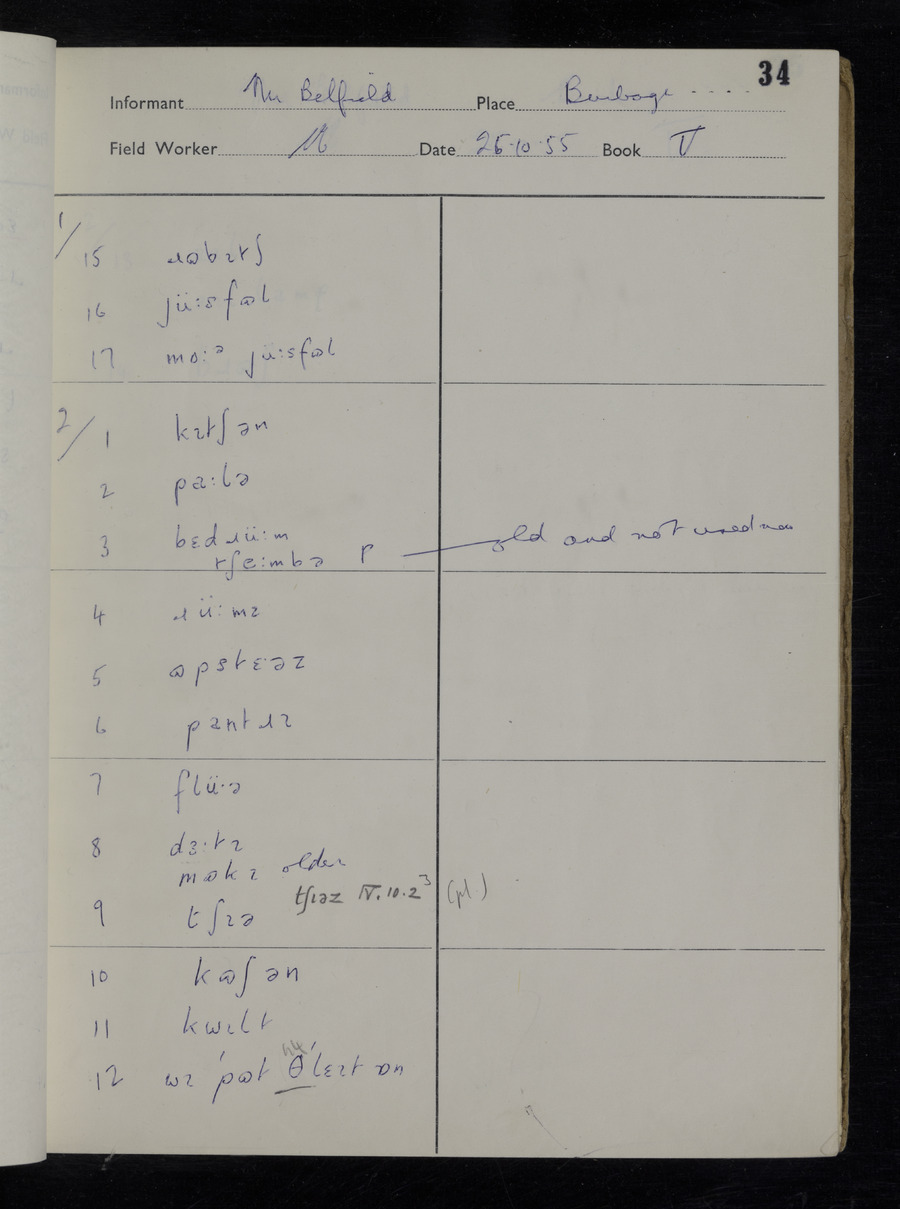 34
Informant Mr Belfield Place Burbage
Field Worker Date 26.10.55 Book V
1/
15 ɹɷbɪtʃ
16 jüːsfɷl
17 mɒːᵊ jüːsfɷl
2/ 1 kɪtʃən
2 paːlə
3 bɛdɹüːm
tʃɛːmbə P old and not used now
4 ɹüːmɪ
5 ɷpstɛˑəz
6 pantɹɪ
7 flüˑə
8 dɜˑtɪ
mɷkɪ older
9 tʃɪə tʃɪəz IV.10.2³ (pl.)
10 kɷʃən
11 kwɪlt
12 wɪ ˈpɷt θˈlɛɪt ɒn